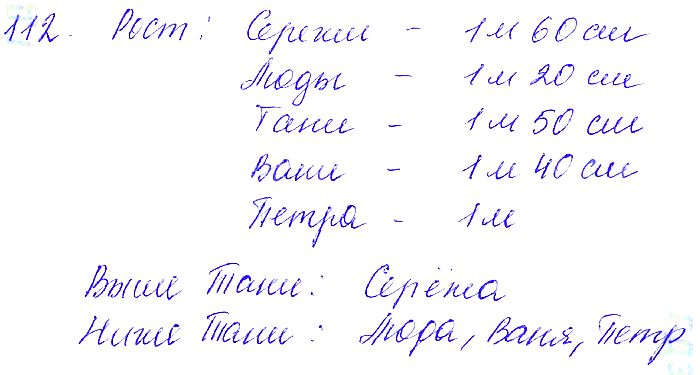 112. Рост: Сережи - 1 м 60 см
Люды - 1 м 20 см
Тани - 1 м 50 см
Вани - 1 м 40 см
Петра - 1 м
Выше Тани: Серёжа
Ниже Тани: Люда, Ваня, Петр